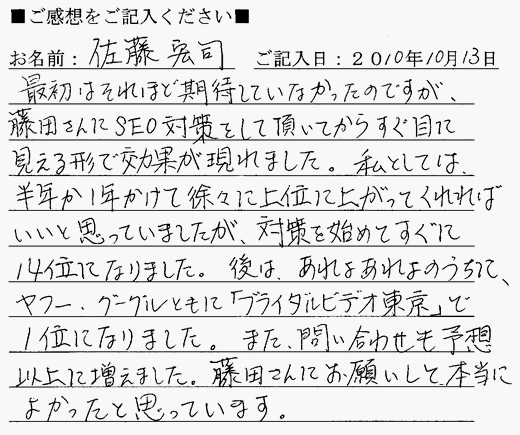 ■ご感想をご記入ください■
お名前：佐藤宏司　ご記入日：２０10年10月13日
最初はそれほど期待していなかったのですが、
藤田さんにSEO対策をして頂いてからすぐ目に
見える形で効果が現れました。私としては、
半年か1年かけて徐々に上位に上がってくれれば
いいと思っていましたが、対策を始めてすぐに
14位になりました。後は、あれよあれよのうちに、
ヤフー、グーグルともに「ブライダルビデオ東京」で
1位になりました。また、問い合わせも予想
以上に増えました。藤田さんにお願いして本当に
よかったと思っています。